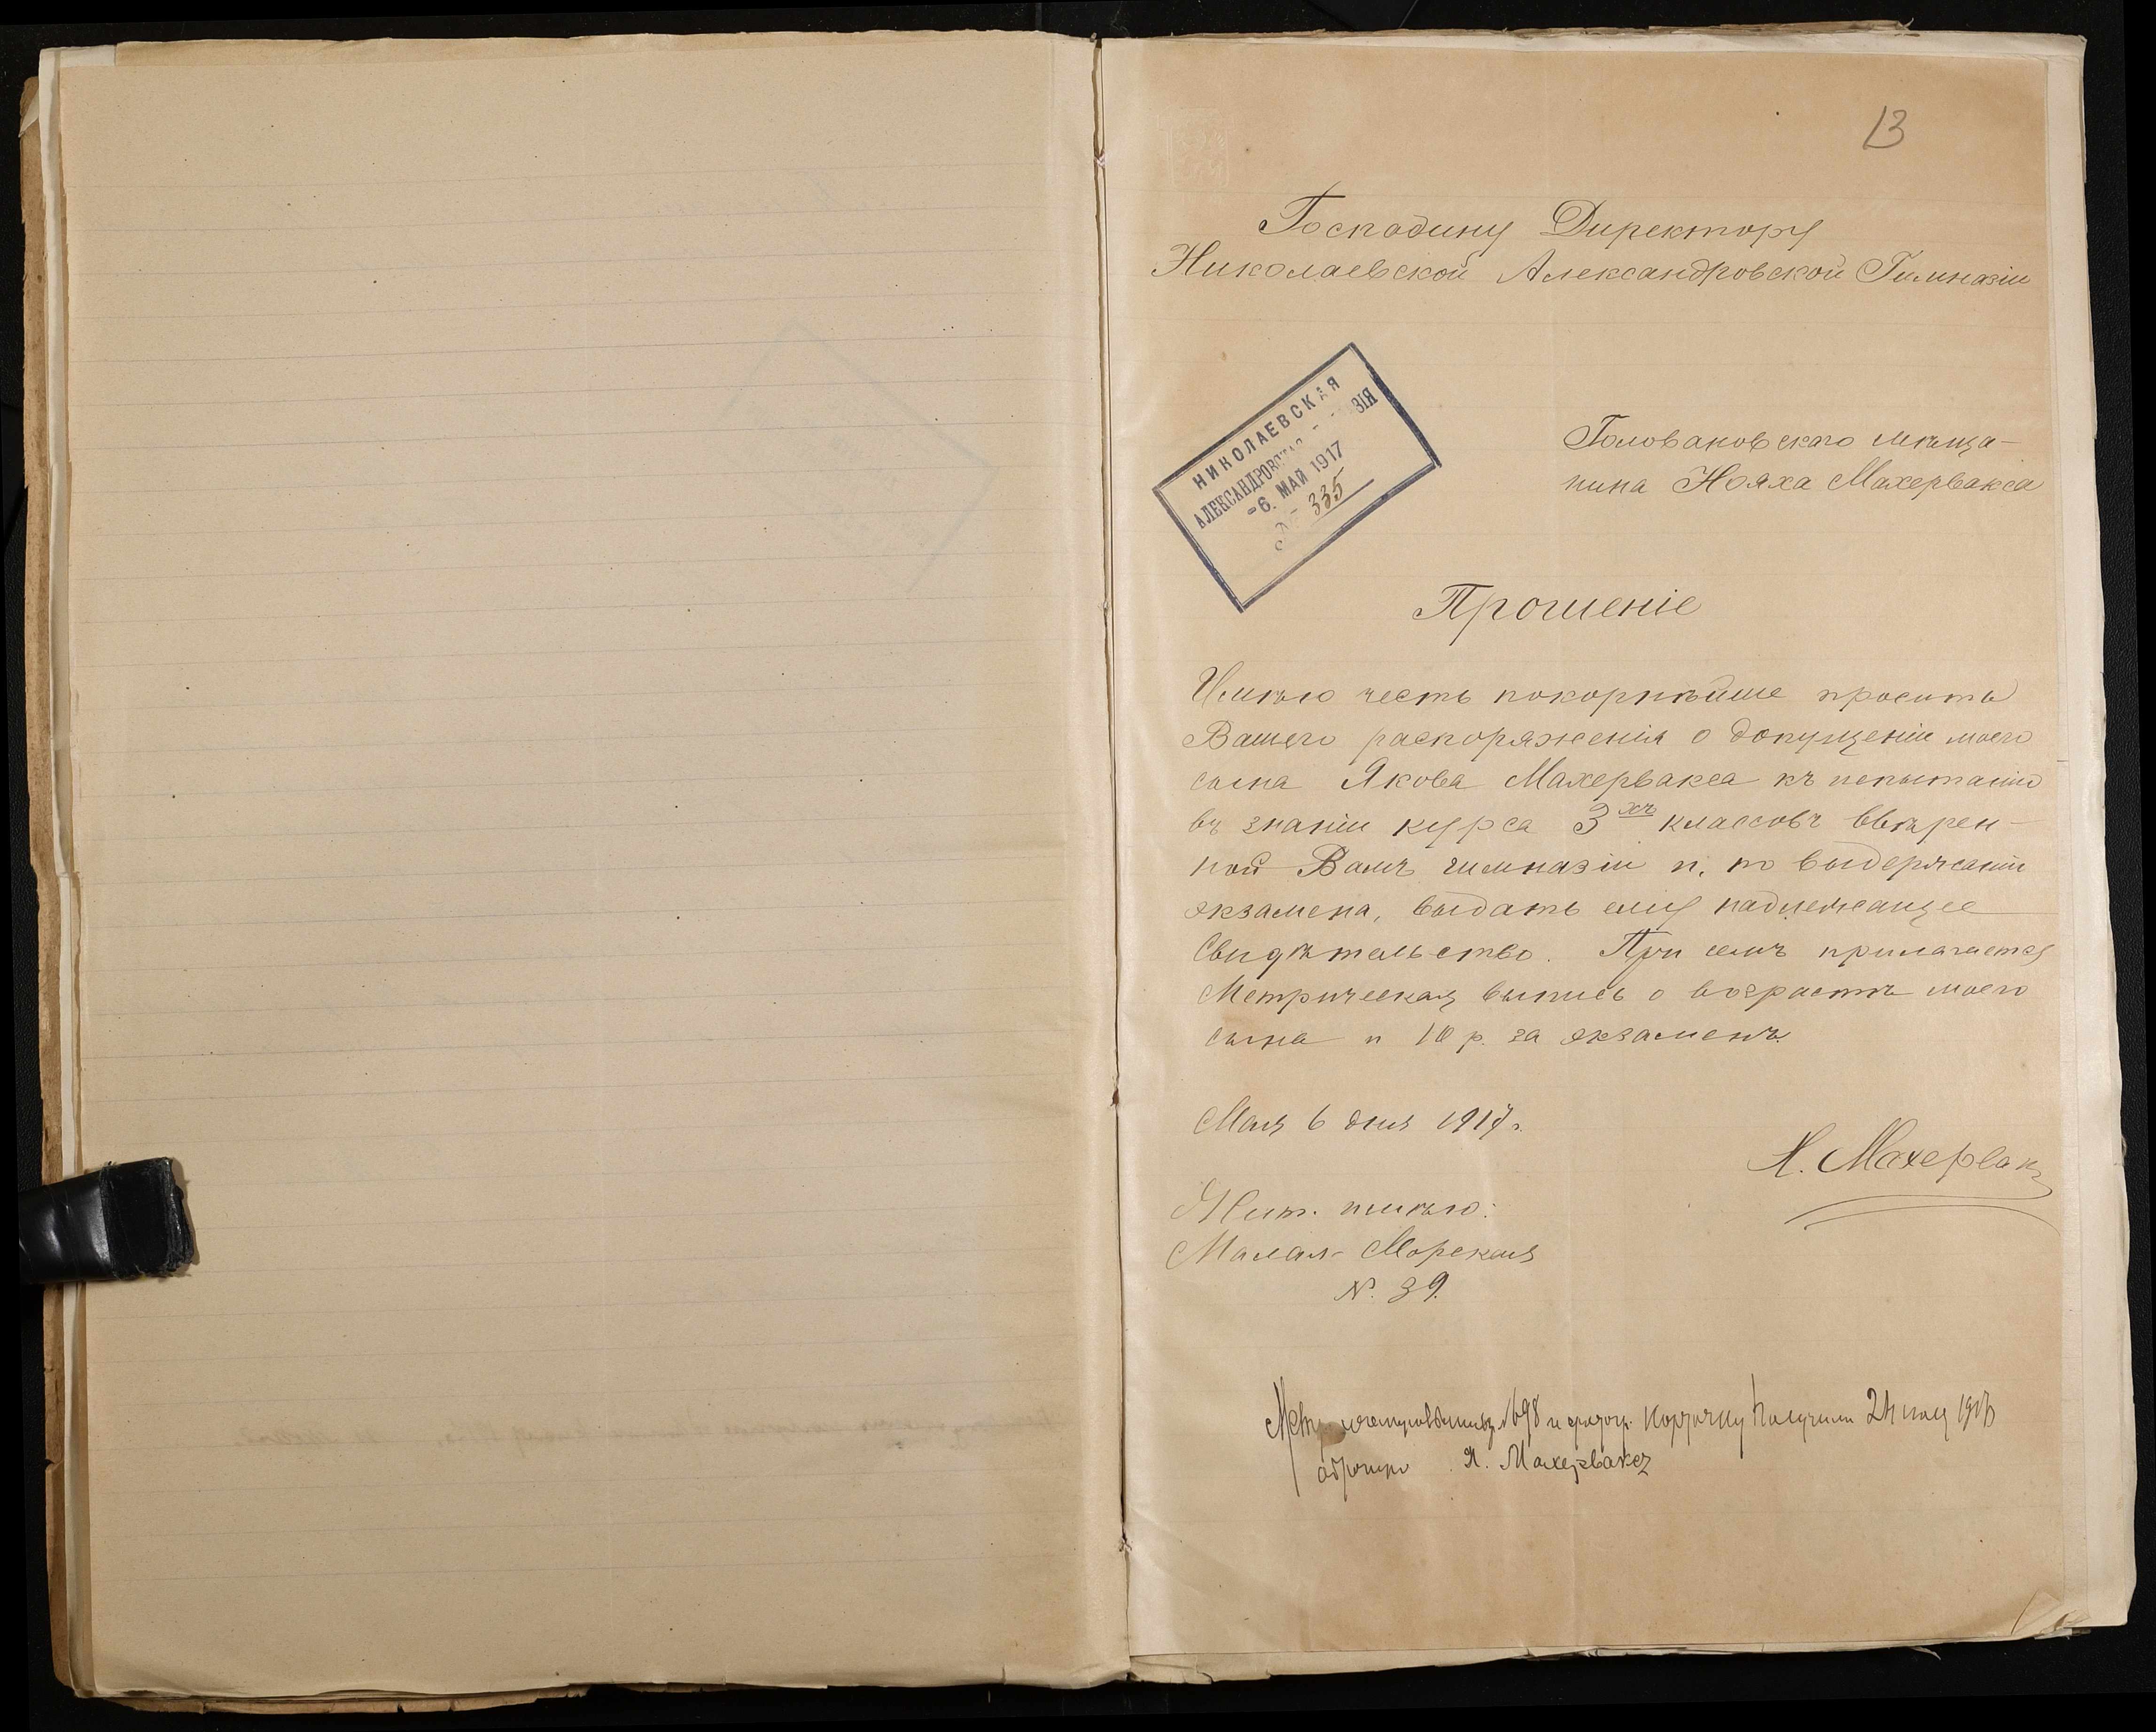 13
Господину Директору
Николаевской Александровской Гимназіи
НИКОЛАЕВСКАЯ
АЛЕКСАНДРОВСКАЯ
-6. МАЙ 1917
№ 335
Головановскаго мѣща-
нина Нояха Махервакса
Прошеніе
Имѣю честь покорнѣйше просить
Вашего распоряженія о допущеніи моего
сына Якова Махервакса къ испытанію
въ знаніи курса 3хъ классовъ ввѣрен-
ной Вамъ гимназіи и, по выдержаніи
экзамена, выдать ему надлежащее
Свидѣтельство. При семъ прилагается
Метрическая выпись о возрастѣ моего
сына и 10 р. за экзаменъ.
Мая 6 дня 1917 г.
Н. Махервакъ
Жит. имѣю:
Малая-Морская
№. 39.
Метр. № 698 и карточку получилъ 24 мая 1917
обратно Я. Махерваксъ